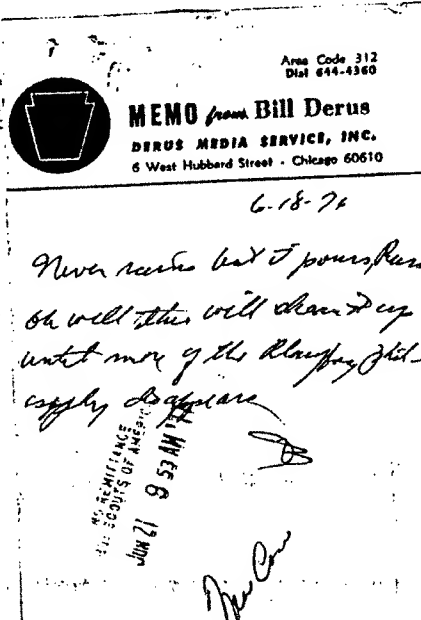 Area Code 312
Dial 644-4360
MEMO from Bill Derus
DERUS MEDIA SERVICE, INC.
6 West Hubbard Street - Chicago 60610
6-18-76
Never rains but it pours, Russ
Oh well, this will clean it up
until more of the
supply disappears
NO REMITTANCE
SCOUTS OF AMERIC
JUN 21 9 53 AM